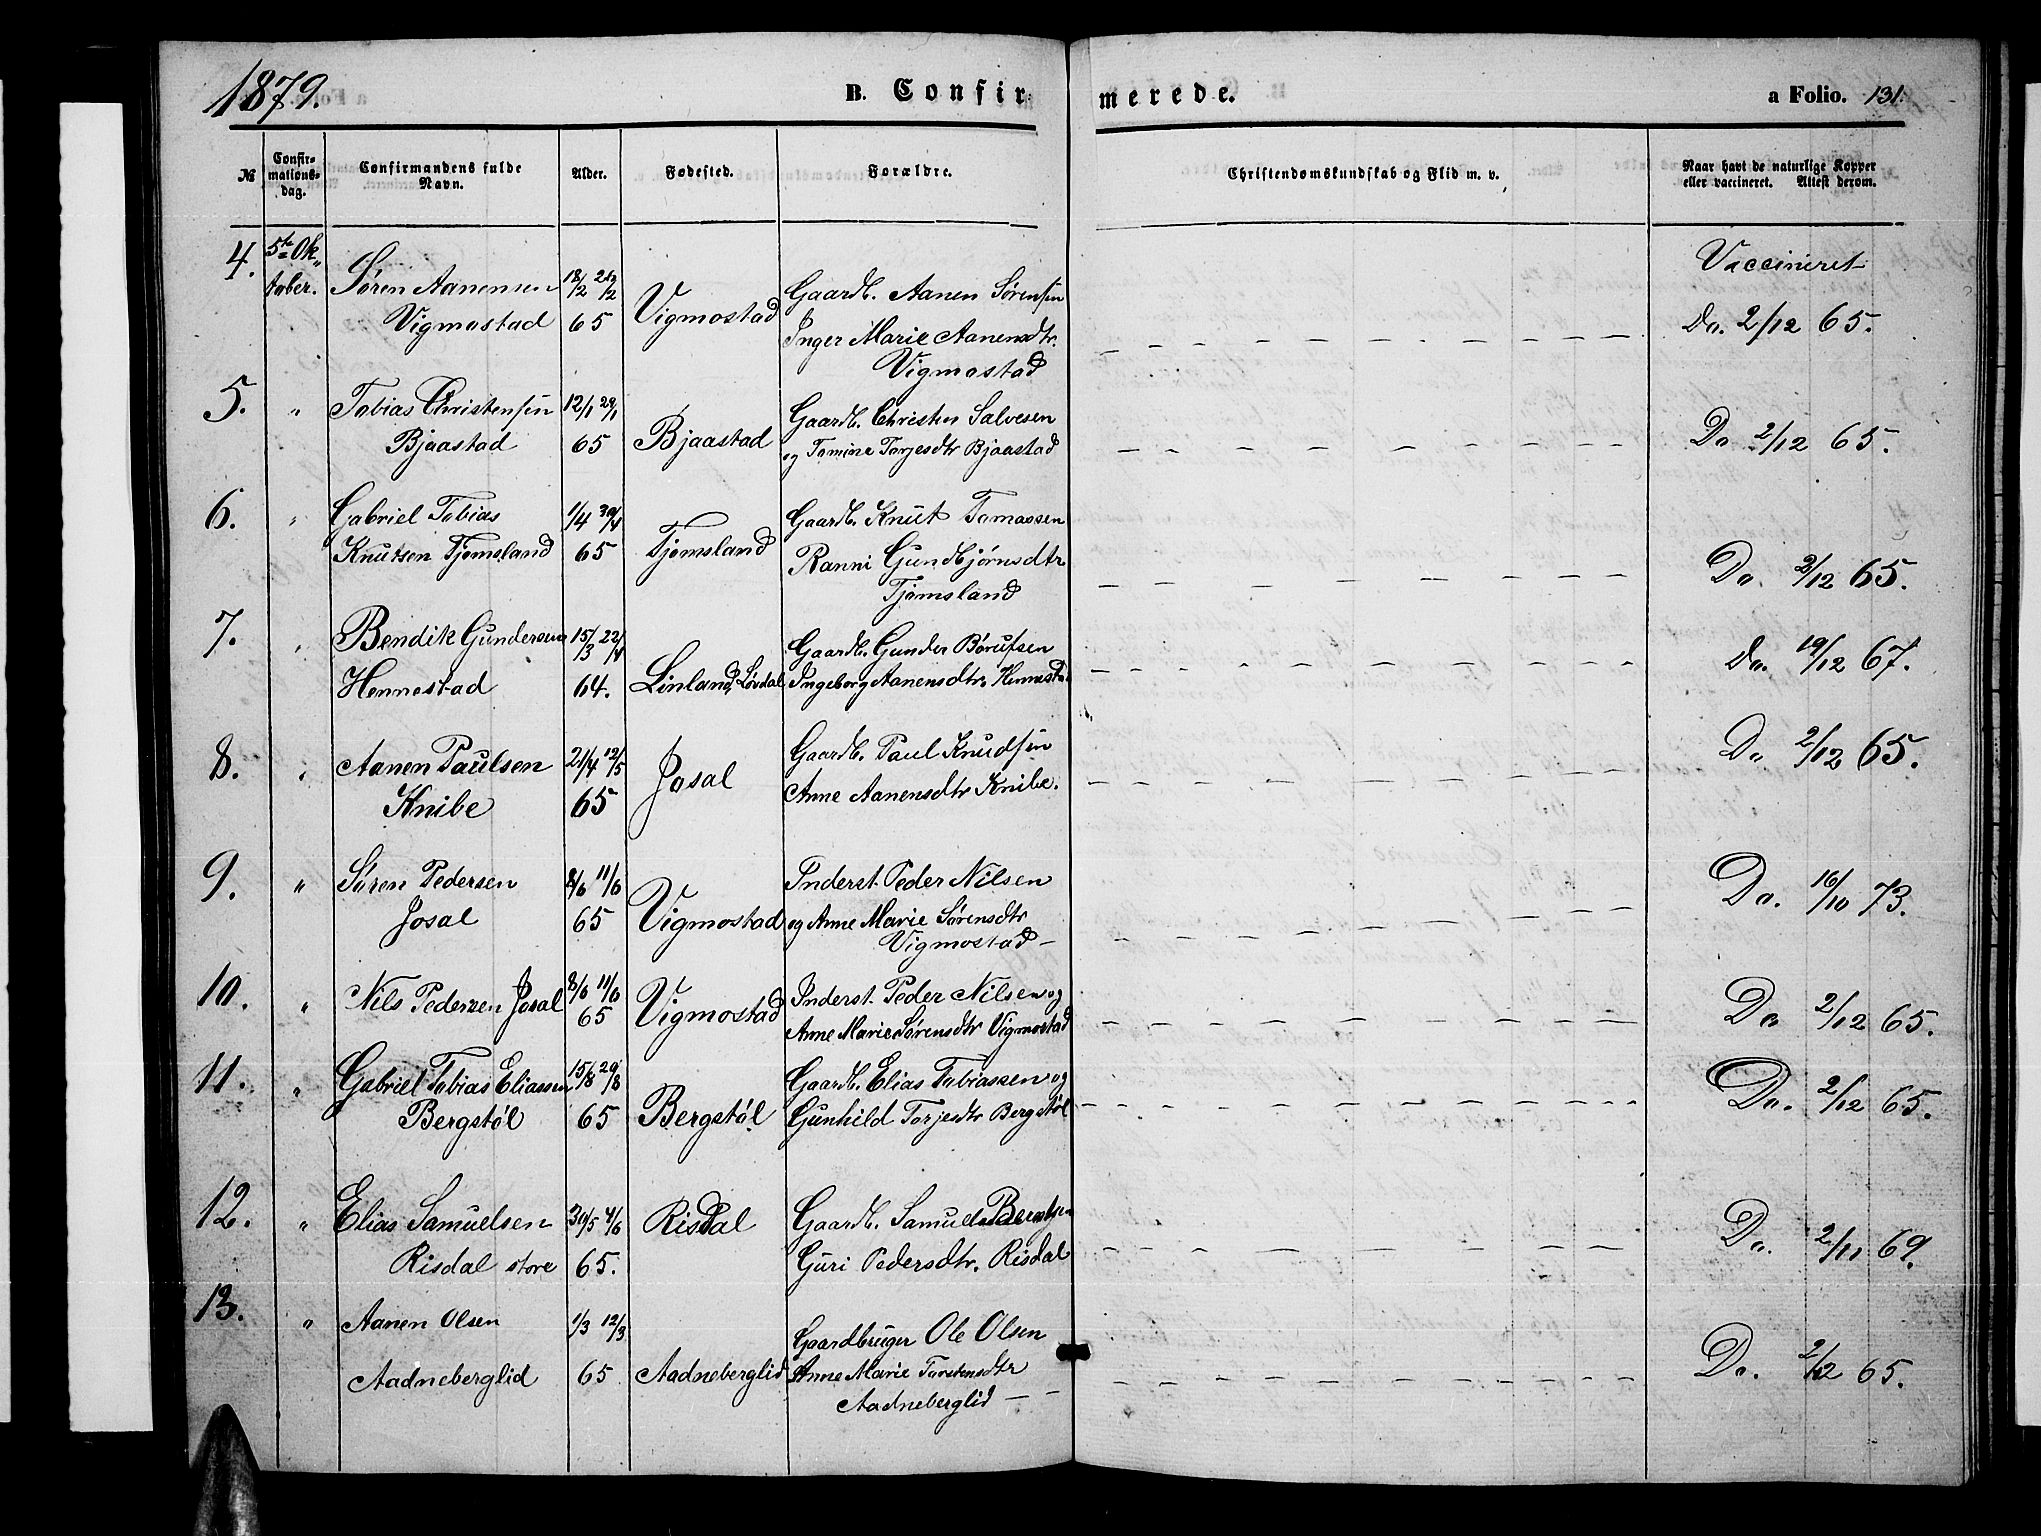 1879.
B. Confirmerede.
a Folio. 131.
№
Confirmations-dag.
Confirmandens fulde Navn.
Alder.
Fødested.
Forældre.
Christendomskundskab og Flid m. v.
Naar havt de naturlige Kopper eller vaccineret. Attest derom.
4. 5te Ok-
tober.
Søren Aanensen
Vigmostad
18/2 26/2
65
Vigmostad
Gaardb. Aanen Sørensen
Inger Marie Aanensdtr.
Vigmostad
Vaccineret
Do. 2/12 65.
5. " Tobias Christensen
Bjaastad
12/1 29/1
65
Bjaastad
Gaardb. Christen Salvesen
og Tomine Torjesdtr Bjaastad
Do 2/12 65.
6. " Gabriel Tobias
Knutsen Tjomsland
1/4 30/4
65
Tjomsland
Gaardb. Knut Tomassen
Ranni Gundbjørnsdtr
Tjomsland
Do. 2/12 65.
7. " Bendik Gundersen
Hennestad
15/3 22/4
64.
Linland, Løvdal
Gaardb. Gunder Børufsen
Ingeborg Aanensdtr. Hennestad
Do. 19/12 67.
8. " Aanen Paulsen
Knibe
21/4 12/5
65
Josal
Gaardb. Paul Knudsen
Anne Aanensdtr Knibe.
Do 2/12 65.
9. " Søren Pedersen
Josal
8/6 11/6
65
Vigmostad
Inderst. Peder Nilsen
og Anne Marie Sørensdtr
Vigmostad
Do. 16/10 73.
10. " Nils Pedersen Josal
8/6 11/6
65
Vigmostad
Inderst. Peder Nilsen og
Anne Marie Sørensdtr Vigmostad
Do 2/12 65.
11. " Gabriel Tobias Eliassen
Bergstøl
15/8 29/8
65
Bergstøl
Gaardb. Elias Tobiassen og
Gunhild Torjesdtr Bergstøl
Do. 2/12 65.
12. " Elias Samuelsen
Risdal store
30/5 4/6
65.
Risdal
Gaardb. Samuel
Guri Pedersdtr. Risdal
Do. 2/11 69.
13. " Aanen Olsen
Aadneberglid
1/3 12/3
65
Aadneberglid
Gaardbruger Ole Olsen
Anne Marie Torstensdtr
Aadneberglid
Do. 2/12 65.